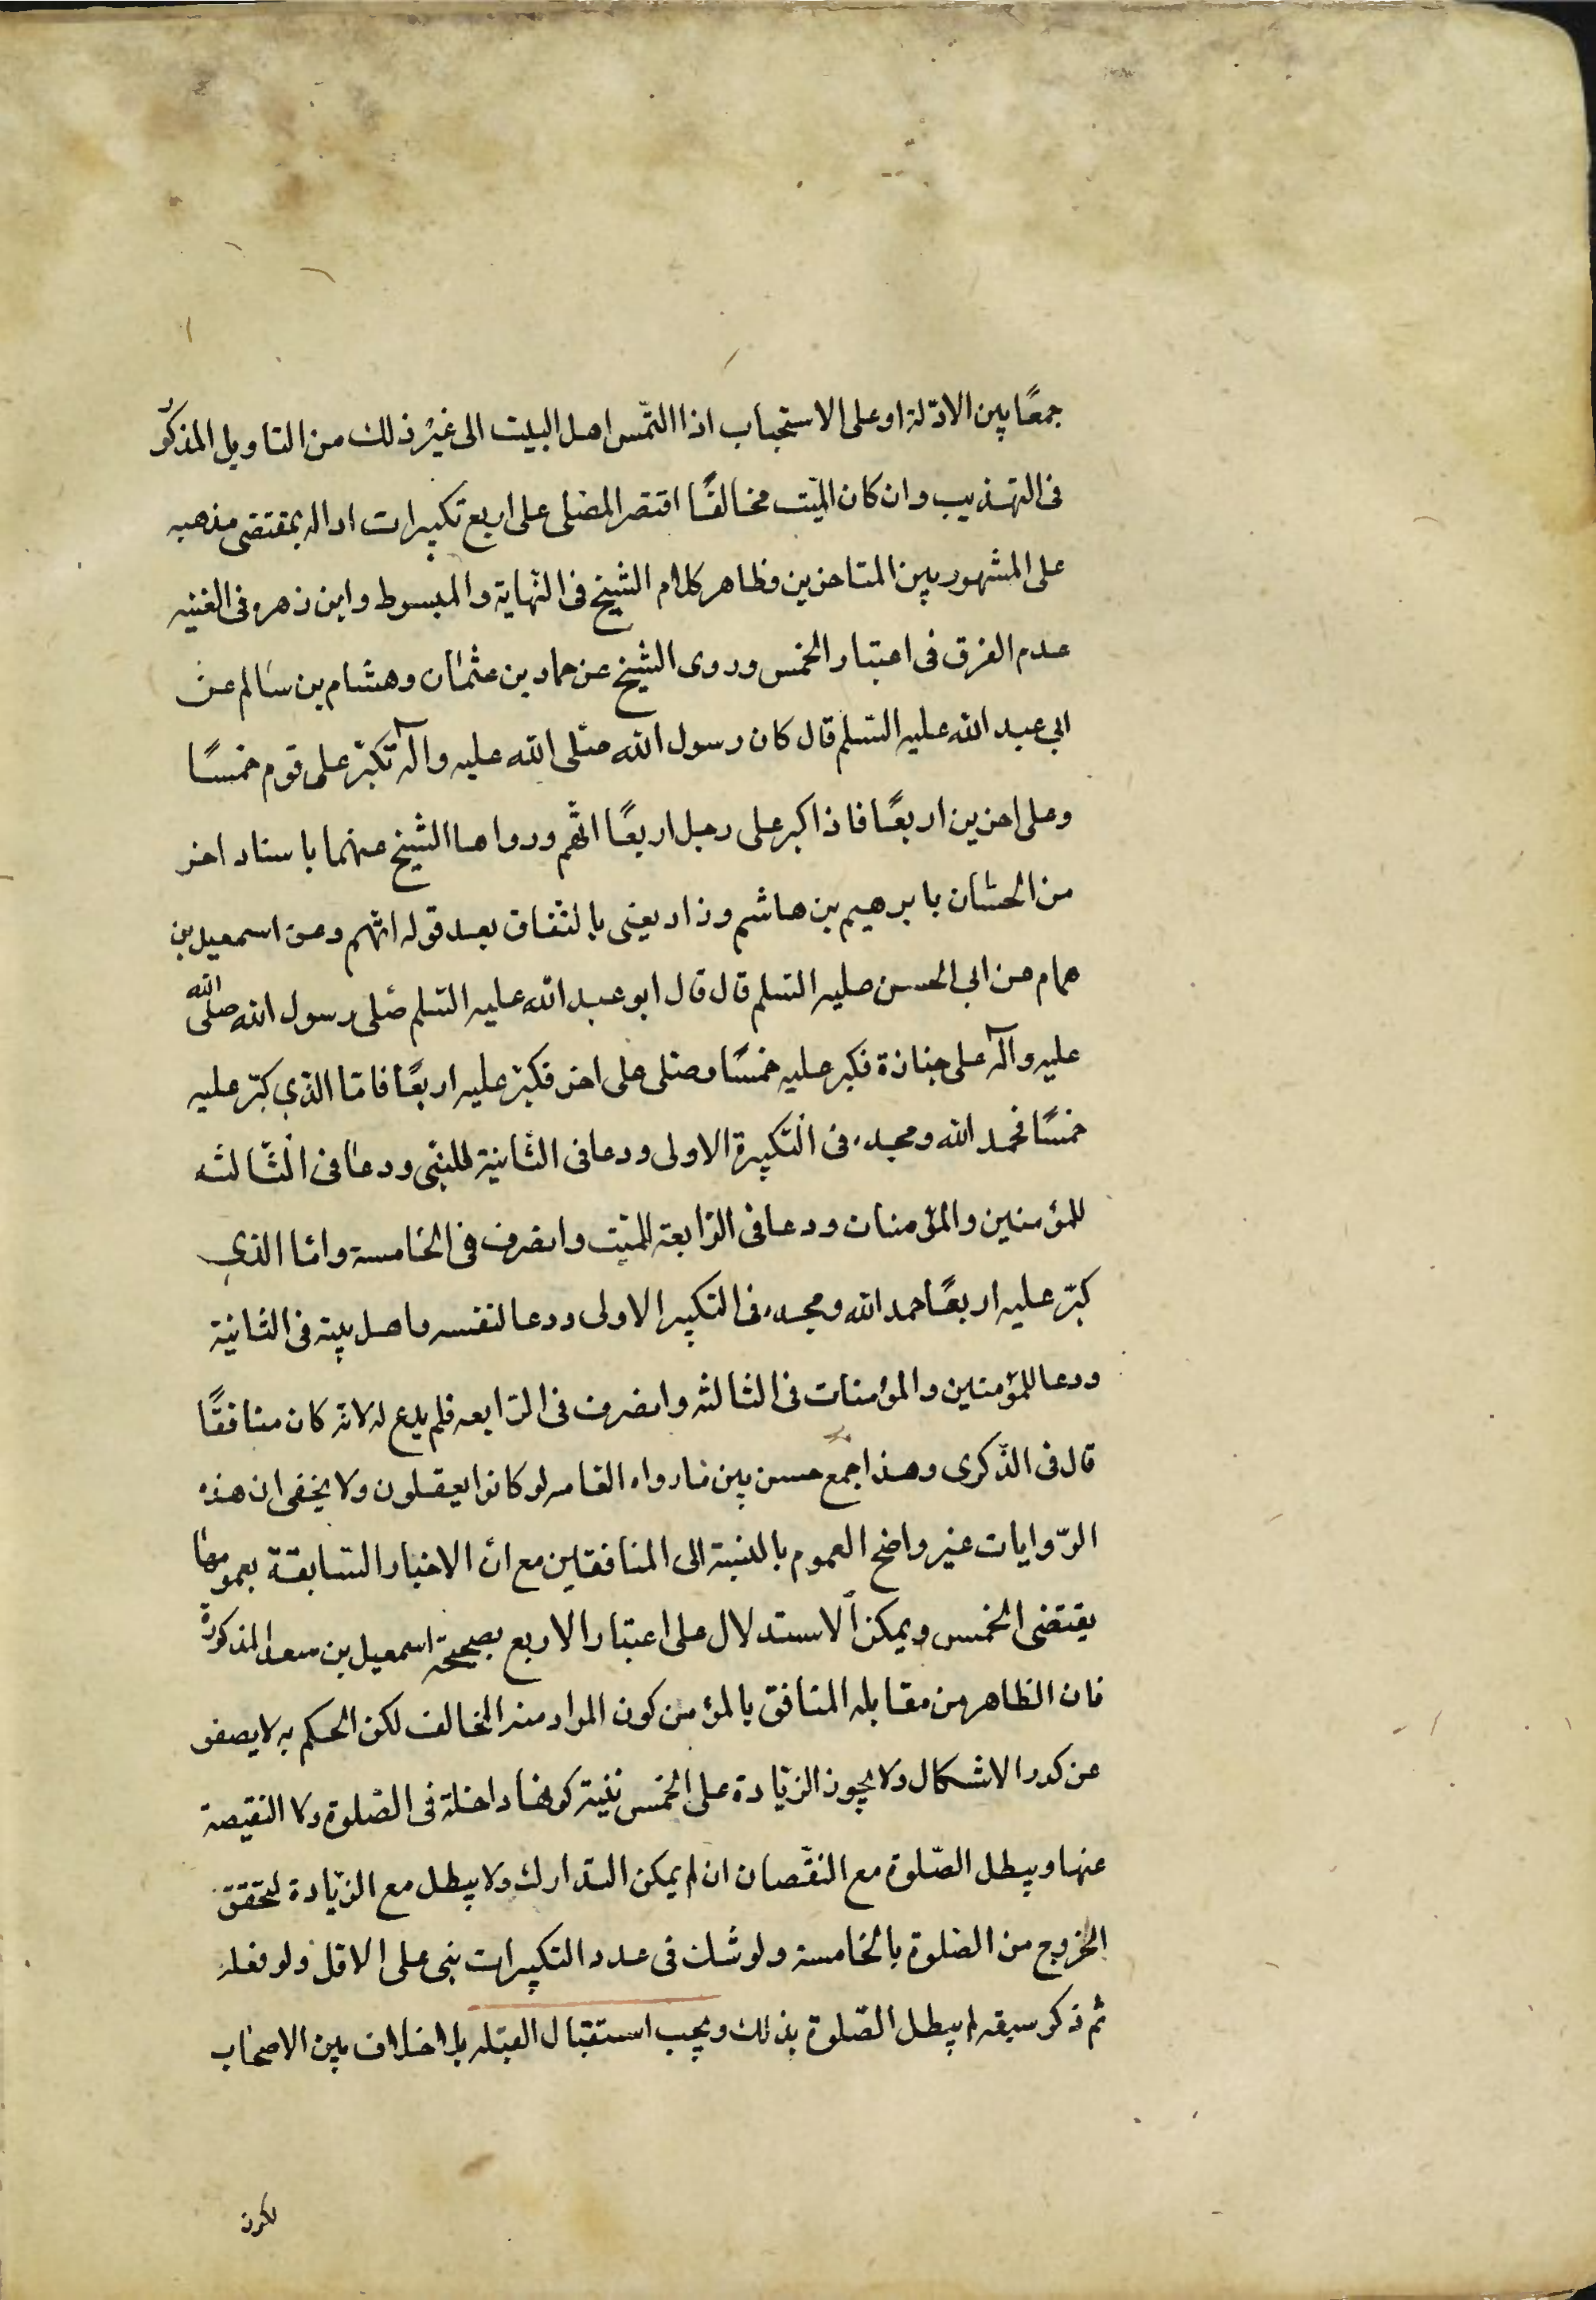 جمعًا بين الادّلة او على الاستحباب اذا التمس اهل البيت الى غير ذلك من التاويل المذكور
فى التهذيب وان كان الميّت مخالفًا اقتصر المصلى على اربع تكبيرات اداله بمقتضى مذهبه
على المشهور بين المتاخرين وظاهر كلام الشيخ فى النّهاية والمبسوط وابن زهره فى الغنيه
عدم الفرق فى اعتبار الخمس وروى الشيخ عن حماد بن عثمان وهشام بن سالم عن
ابي عبد الله عليه السّلم قال كان رسول الله صلى الله عليه وآله تكبّر على قوم خمسًا
وعلى اخرين اربعًا فاذا كبر على رجل اربعًا اتّهم ورواها الشيخ عنهما باسناد اخر
من الحسان بابرهيم بن هاشم وزاد يعنى بالنّفاق بعد قوله اتّهم وعن اسمعيل بن
همام عن ابي الحسن عليه السّلم قال قال ابو عبد الله عليه السّلم صّلى رسول الله صلى الله
عليه وآله على جنازة فكبر عليه خمسًا وصلى على اخر فكبّر عليه اربعًا فامّا الذي كبّر عليه
خمسًا فحمد الله ومجده فى التكبيرة الاولى ودعا فى الثانية للنبّى ودعا فى الثّالثه
للمؤمنين والمؤمنات ودعا فى الرّابعة للميّت وانصرف فى الخامسة وامّا الذي
كبّر عليه اربعًا حمد الله ومجده فى التكبير الاولى ودعا لنفسه واهل بيته فى الثانية
ودعا للمؤمنين والمؤمنات فى الثالثه وانصرف فى الرّابعه فلم يدع له لانه كان منافقًا
قال فى الذّكرى وهذا جمع حسن بين ما رواه العامه لو كانوا يعقلون ولا يخفى ان هذه
الرّوايات غير واضح العموم بالنسبة الى المنافقين مع انّ الاخبار السّابقة بعمومها
يقتضى الخمس ويمكن الاستدلال على اعتبار الاربع بصحيحة اسمعيل بن سعد المذكورة
فان الظاهر من مقابله المنافق بالمؤمن كون المراد منه المخالف لكن الحكم به لا يصفو
عن كدر الاشكال ولا يجوز الزّيادة على الخمس بنية كونها داخلة فى الصّلوة ولا النقيصة
عنها ويبطل الصّلوة مع النقّصان ان لم يمكن التدارك ولا يبطل مع الزّيادة لتحقق
الخروج من الصّلوة بالخامسة ولو شك فى عدد التكبيرات بنى على الاقل ولو فعله
ثم ذكر سبقه لم يبطل الصّلوة بذلك ويجب استقبال القبله بلا خلاف بين الاصحاب